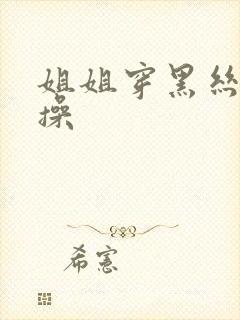 姐姐穿黑丝
操
希宪